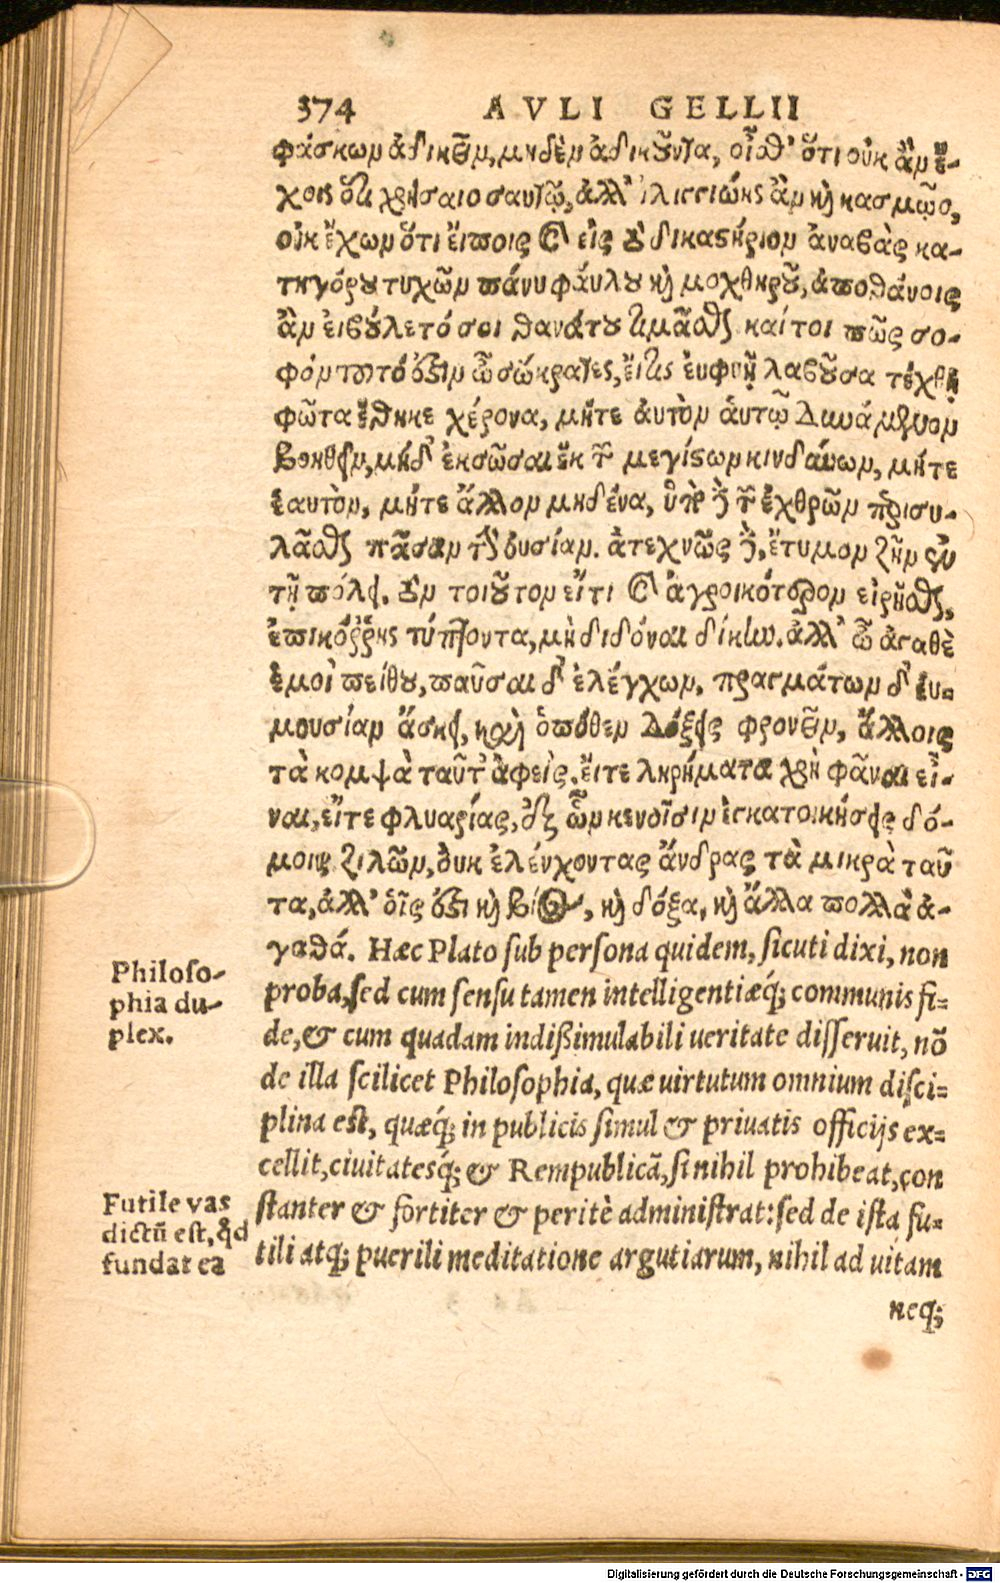 374 AVLI GELLII
φάσκων ἀδικεῖν, μηδὲν ἀδικοῦντα, οἶσθ’ ὅτι οὐκ ἂν ἔ-
χοις ὅτι χρήσαιο σαυτῷ, ἀλλ’ ἰλιγγιώης ἂν καὶ χασμῷο,
οὐκ ἔχων ὅτι εἴποις καὶ εἰς τὸ δικαστήριον ἀναβὰς κα-
τηγόρου τυχὼν πάνυ φάυλου καὶ μοχθηροῦ, ἀποθάνοις
ἂν εἰ βούλετό σοι θανάτου τιμᾶσθαι καίτοι πῶς σο-
φόν τοῦτό ἐστιν ὦ σώκρατες, εἴ τις ἐυφυῆ λαβοῦσα τέχνη
φῶτα ἔθηκε χέρονα, μήτε ἀυτὸν ἁυτῷ δυνάμενον
βοηθεῖν, μήδ’ ἐκσῶσαι ἐκ τῶν μεγίστων κινδύνων, μήτε
ἑαυτὸν, μήτε ἄλλον μηδένα, ὑπὸ δὲ τῶν ἐχθρῶν περισυ-
λᾶσθαι πᾶσαν τὴν ουσίαν. ἀτεχνῶς δὲ, ἔτυμον ζῆν ἐν
τῇ πόλει. τὸν τοιοῦτον εἴ τι καὶ ἀγροικότερον εἰρῆσθαι,
ἐπικόῤῥης τύπτοντα, μὴ διδόναι δίκην. ἀλλ’ ὦ ἀγαθὲ
ἐμοὶ πείθου, παῦσαι δ’ ἐλέγχων, πραγμάτων δ’ ἐυ-
μουσίαν ἄσκει, καὶ ὁπόθεν δόξεις φρονεῖν, ἄλλοις
τὰ κομψὰ ταῦτ’ ἀφεὶς, ἔιτε ληρήματα χρὴ φᾶναι εἶ-
ναι, εἴτε φλυαρίας, ἐξ ὧν κενοῖσιν ἐγκατοικήσεις δό-
μοις ζιλῶν, ουκ ἐλένχοντας ἄνδρας τὰ μικρὰ ταῦ
τα, ἀλλ’ οἷς ἐστι καὶ βίος, καὶ δόξα, καὶ ἄλλα πολλὰ ἀ-
γαθά. Hæc Plato sub persona quidem, sicuti dixi, non
proba, sed cum sensu tamen intelligentiæq́; communis fi-
de, & cum quadam indißimulabili ueritate disseruit, nō
de illa scilicet Philosophia, quæ uirtutum omnium disci-
plina est, quæq́; in publicis simul & priuatis officijs ex-
cellit, ciuitatesq́; & Rempublicā, si nihil prohibeat, con
stanter & fortiter & peritè administrat: sed de ista fu-
tili atq; puerili meditatione argutiarum, nihil ad uitam
neq;
Philoso-
phia du-
plex.
Futile vas
dictū est, qđ
fundat ea
Digitalisierung gefördert durch die Deutsche Forschungsgemeinschaft - DFG